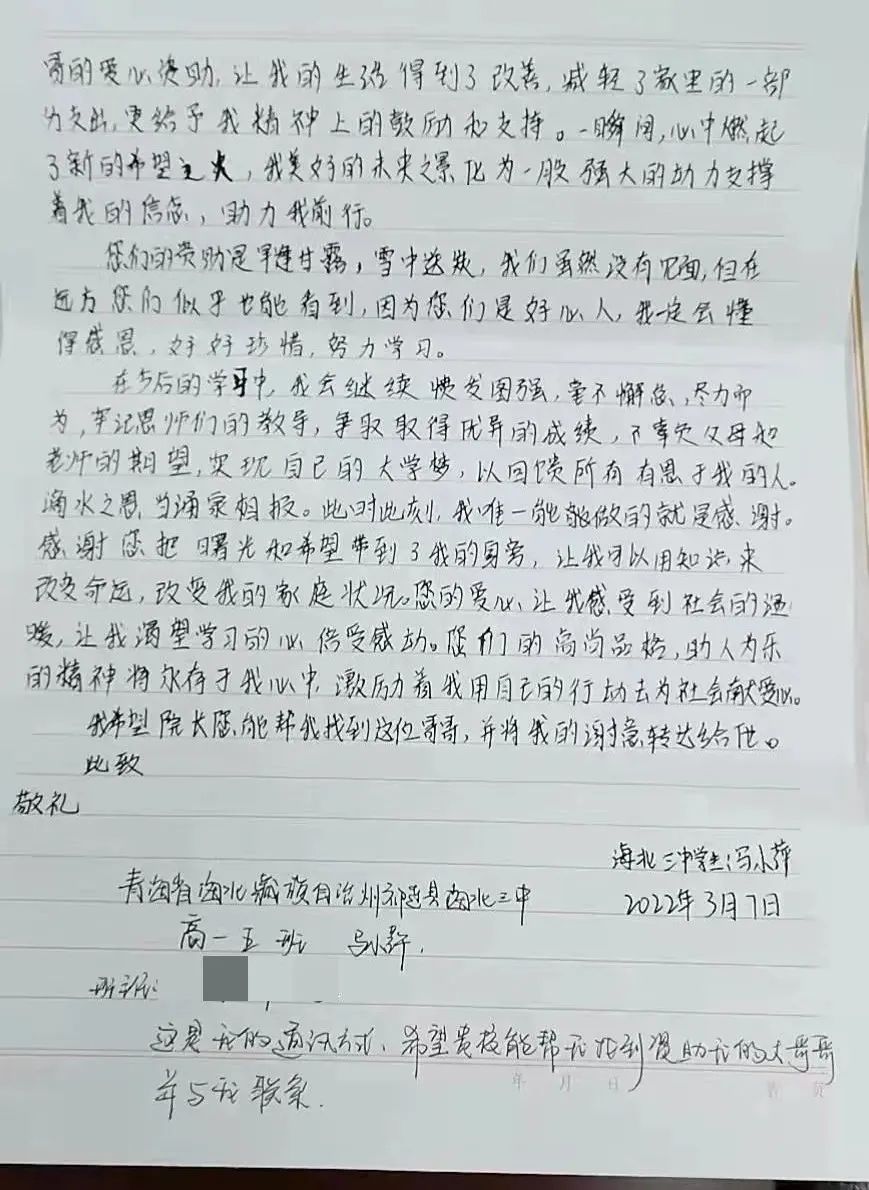 哥的爱心资助,让我的生活得到了改善,减轻了家里的一部
分支出,更给予我精神上的鼓励和支持。一瞬间,心中燃起
了新的希望之火,我美好的未来之景化为一股强大的动力支撑
着我的信念,助力我前行。
您们的资助是旱逢甘露,雪中送炭,我们虽然没有见面,但在
远方您们似乎也能看到,因为您们是好心人,我一定会懂
得感恩,好好珍惜,努力学习。
在今后的学习中,我会继续愤发图强,毫不懈怠,尽力而
为,牢记恩师们的教导,争取取得优异的成绩,不辜负父母和
老师的期望,实现自己的大学梦,以回馈所有有恩于我的人。
滴水之恩,当涌泉相报。此时此刻,我唯一能能做的就是感谢。
感谢您把曙光和希望带到了我的身旁,让我可以用知识来
改变命运,改变我的家庭状况。您的爱心,让我感受到社会的温
暖,让我渴望学习的心倍受感动。您们的高尚品格,助人为乐
的精神将永存于我心中,激励着我用自己的行动去为社会献爱心。
我希望院长您能帮我找到这位哥哥,并将我的谢意转达给他。
此致
敬礼
海北三中学生:马小萍
2022年3月7日
青海省海北藏族自治州祁连县海北三中
高一五班 马小萍.
班主任:
这是我的通讯方式,希望贵校能帮我找到资助我的大哥哥
并与我联系.
年 月 日
第 页